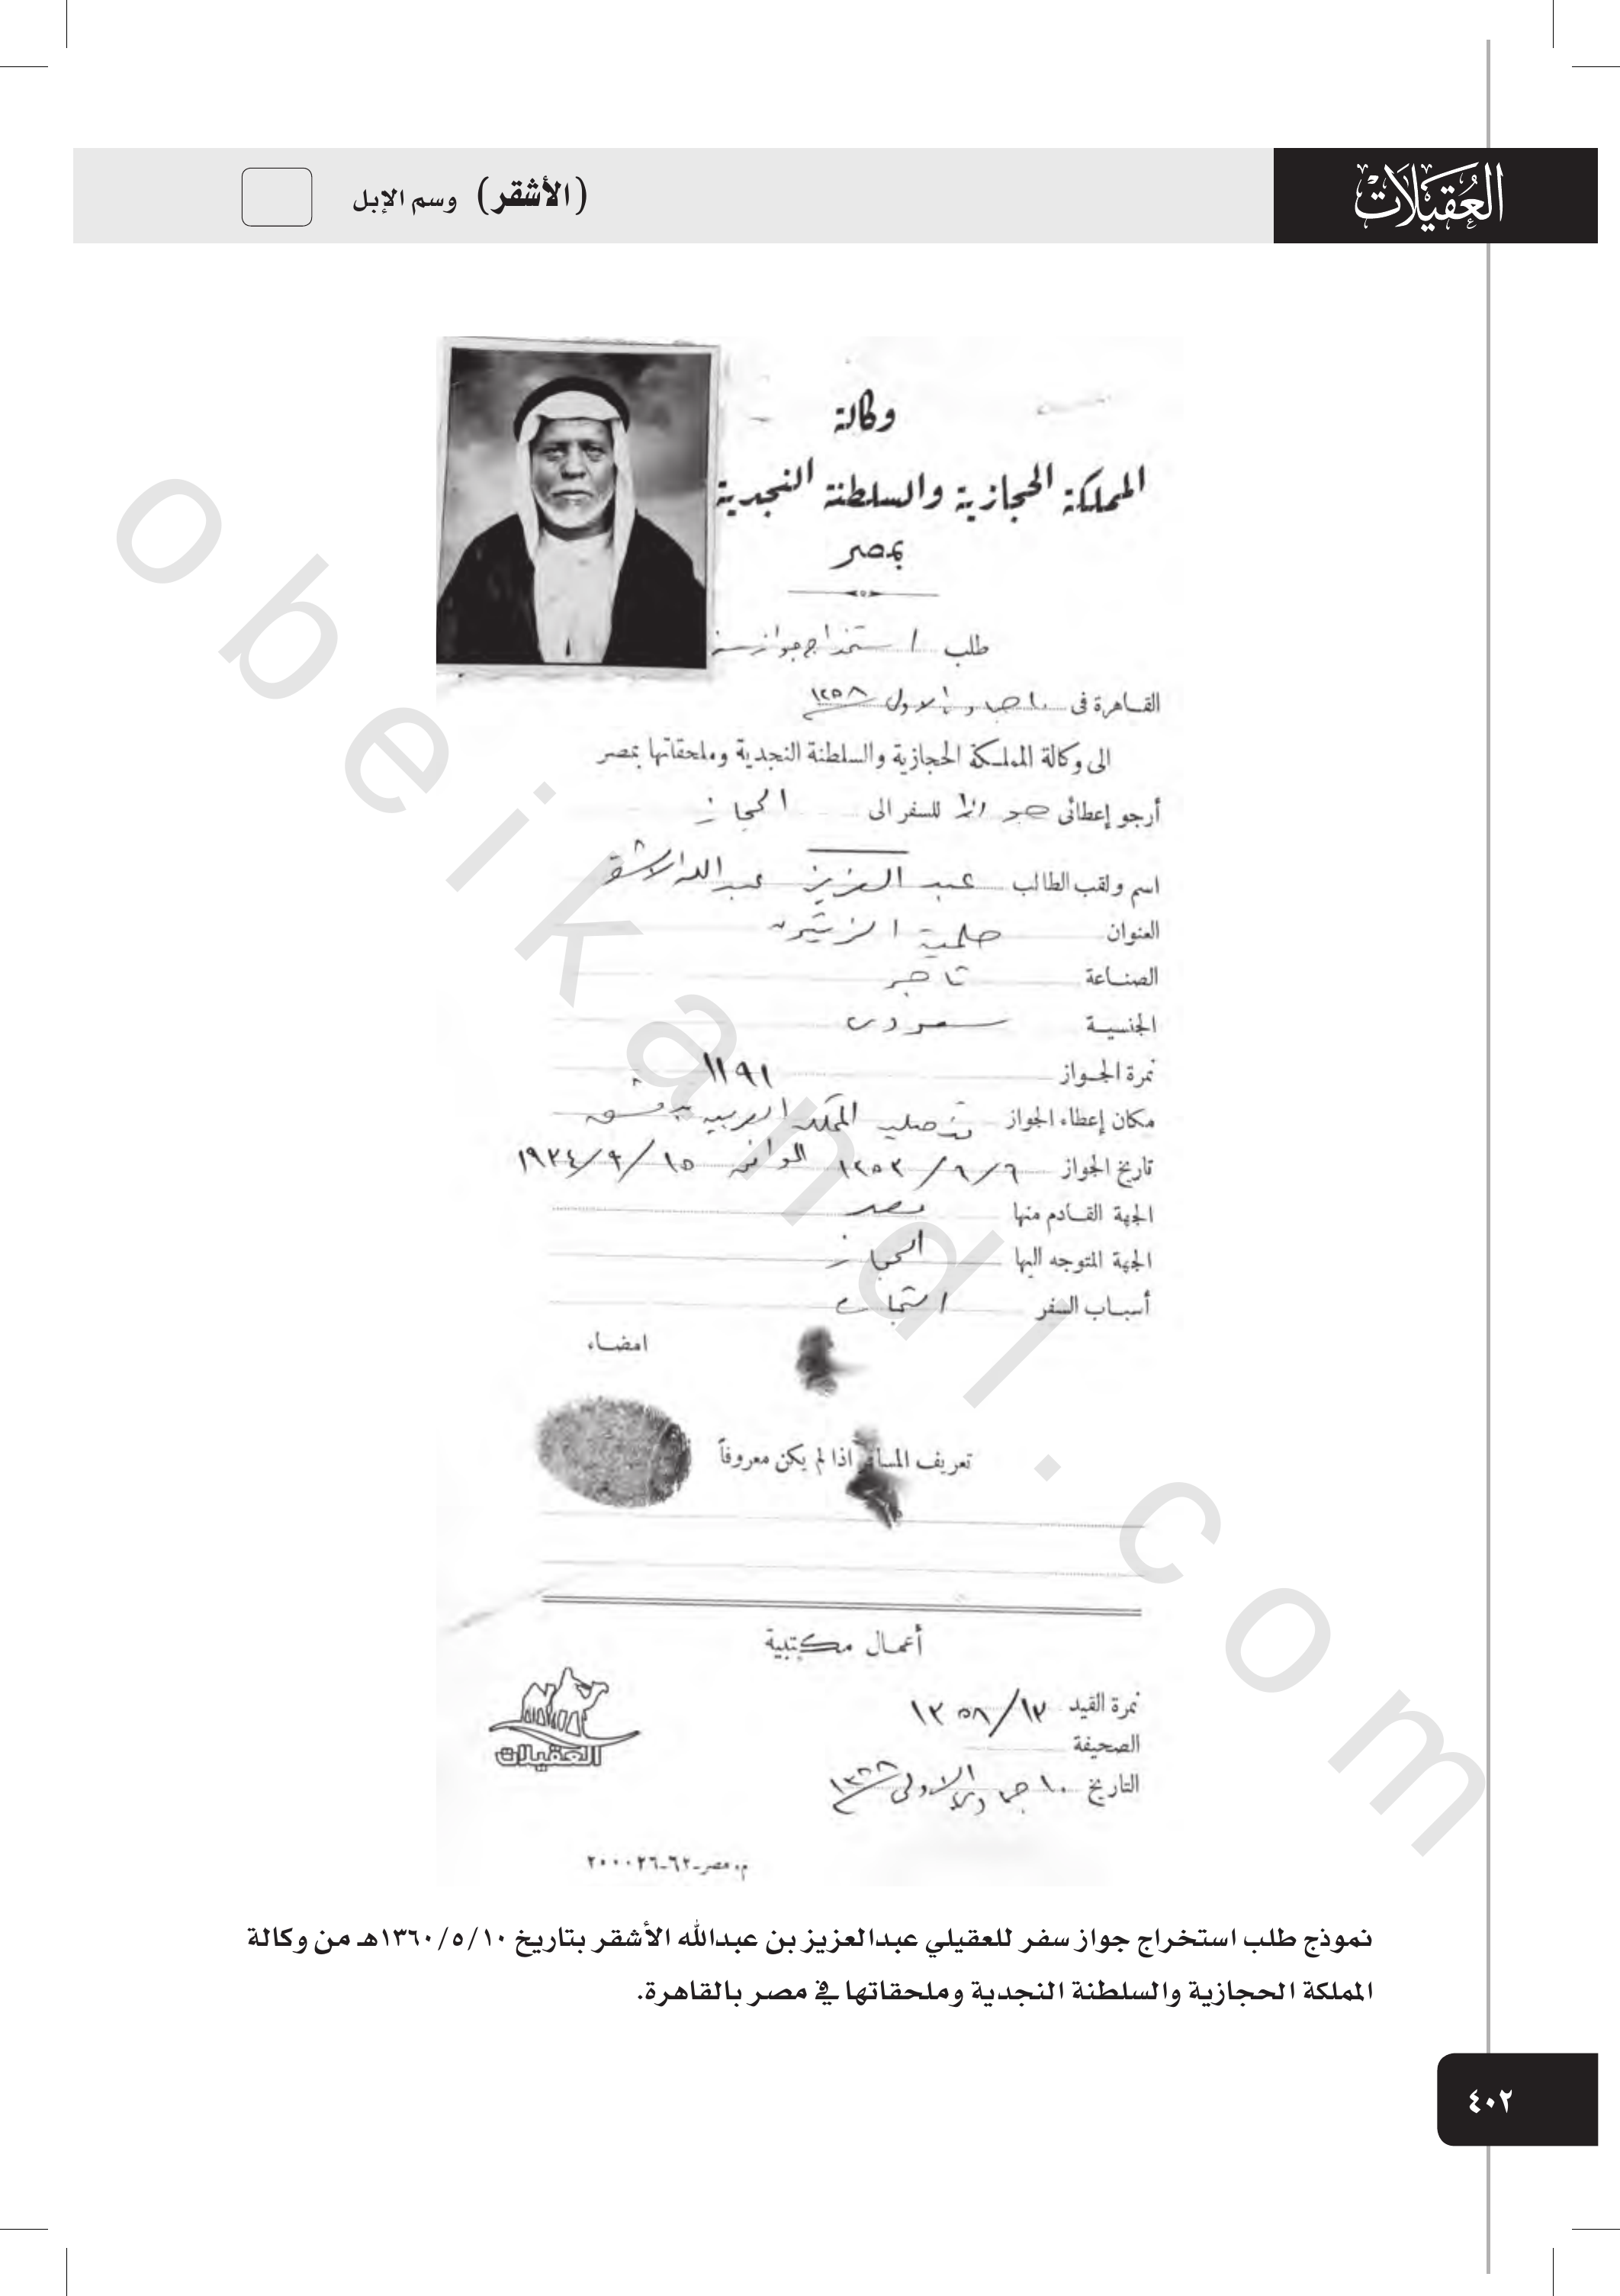 العُقيلات
(الأشقر) وسم الإبل
وكالة
المملكة الحجازية والسلطنة النجدية
بمصر
طلب استخراج جواز سفر
القاهرة فى ١٠ جماد الاول ١٣٥٨
الى وكالة المملكة الحجازية والسلطنة النجدية وملحقاتها بمصر
أرجو إعطائى جوازا للسفر الى الحجاز
اسم ولقب الطالب عبد العزيز عبد الله الاشقر
العنوان حلمية الزيتون
الصناعة تاجر
الجنسية سعودى
نمرة الجواز ١١٩١
مكان إعطاء الجواز قنصلية المملكة العربية بدمشق
تاريخ الجواز ٦/٦/١٣٥٣ الموافق ١٥/٩/١٩٣٤
الجهة القادم منها مصر
الجهة المتوجه اليها الحجاز
أسباب السفر
امضاء
تعريف المسافر اذا لم يكن معروفاً
أعمال مكتبية
نمرة القيد ١٣/١٣٥٨
الصحيفة
التاريخ ١٠ جمادى الاولى ١٣٥٨
العقيلات
م. مصر-٦٢-٢٠٠٠٢٦
نموذج طلب استخراج جواز سفر للعقيلي عبدالعزيز بن عبدالله الأشقر بتاريخ ١٣٦٠/٥/١٠هـ من وكالة
المملكة الحجازية والسلطنة النجدية وملحقاتها في مصر بالقاهرة.
٤٠٢
obeikandl.com